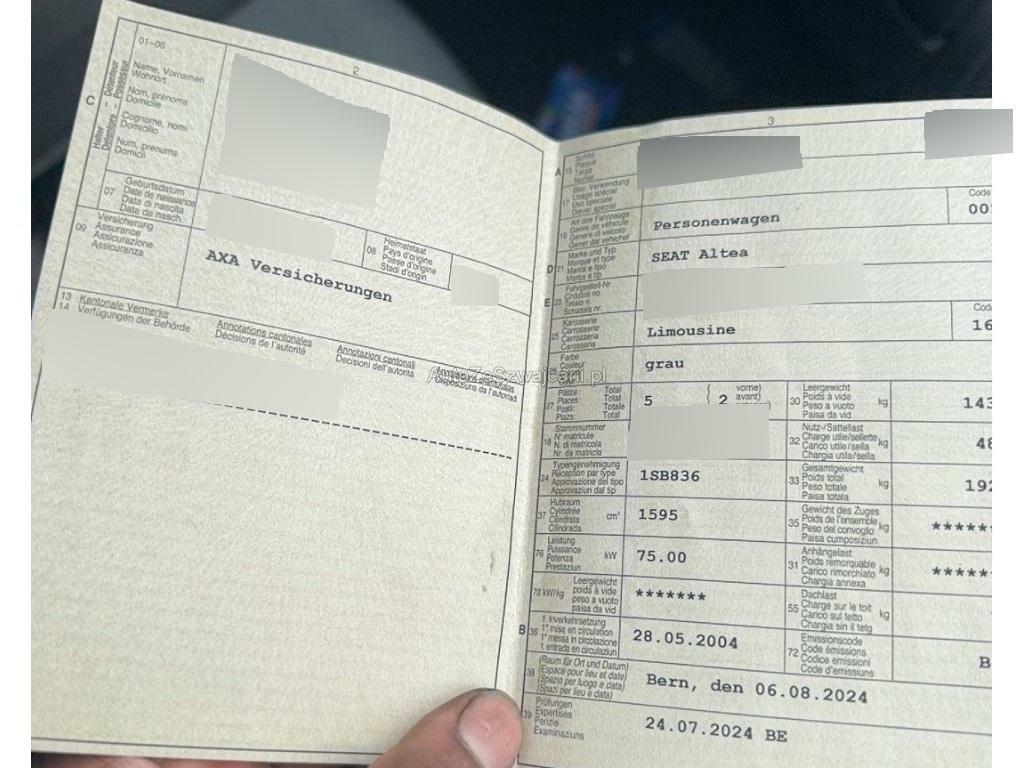 2
01-06
Name, Vornamen
Wohnort
Nom, prénoms
Domicile
Cognome, nomi
Domicilio
Num, prenums
Domicil
C
Halter
Détenteur
Detentore
Possessur
07
Geburtsdatum
Date de naissance
Data di nascita
Data da nasch.
08
Heimatstaat
Pays d'origine
Paese d'origine
Stadi d'origin
09
Versicherung
Assurance
Assicurazione
Assicuranza
AXA Versicherungen
13 Kantonale Vermerke
14 Verfügungen der Behörde
Annotations cantonales
Décisions de l'autorité
Annotazioni cantonali
Decisioni dell'autorità
Disposiziuns da l'autoritad
AutoZeSzwajcarii.pl
3
A 15
Schild
Plaque
Targa
Numer
17
Bes. Verwendung
Usage spécial
Uso speciale
Diever spezial
19
Art des Fahrzeugs
Genre de véhicule
Genere di veicolo
Gener dal vehichel
Personenwagen
Code
D 21
Marke und Typ
Marque et type
Marca e tipo
Marca e tip
SEAT Altea
E 23
Fahrgestell-Nr.
Châssis no
Telaio n.
Schassis nr.
25
Karosserie
Carrosserie
Carrozzeria
Carossaria
Limousine
Code
16
26
Farbe
Couleur
grau
27
Plätze: Total
Places: Total
Posti: Totale
Plazs: Total
5
( 2
vorne)
avant)
30
Leergewicht
Poids à vide
Peso a vuoto
Paisa da vid
kg
143
18
Stammnummer
N° matricule
N. di matricola
Nr. da matricla
32
Nutz-/Sattellast
Charge utile/sellette
Carico utile/sella
Chargia utila/sella
kg
48
24
Typengenehmigung
Réception par type
Approvazione del tipo
Approvaziun dal tip
1SB836
33
Gesamtgewicht
Poids total
Peso totale
Paisa totala
kg
192
37
Hubraum
Cylindrée
Cilindrata
Cilindrada
cm³
1595
35
Gewicht des Zuges
Poids de l'ensemble
Peso del convoglio
Paisa cumposiziun
kg
*****
76
Leistung
Puissance
Potenza
Prestaziun
kW
75.00
31
Anhängelast
Poids remorquable
Carico rimorchiato
Chargia annexa
kg
*****
78 kW/kg
Leergewicht
poids à vide
peso a vuoto
paisa da vid
*******
55
Dachlast
Charge sur le toit
Carico sul tetto
Chargia sin il tetg
kg
B 36
1. Inverkehrsetzung
1re mise en circulation
1a messa in circolazione
1. entrada en circulaziun
28.05.2004
72
Emissionscode
Code émissions
Codice emissioni
Code d'emissiuns
B
38
(Raum für Ort und Datum)
(Espace pour lieu et date)
(Spazio per luogo e data)
(Spazi per lieu e data)
Bern, den 06.08.2024
39
Prüfungen
Expertises
Perizie
Examinaziuns
24.07.2024 BE